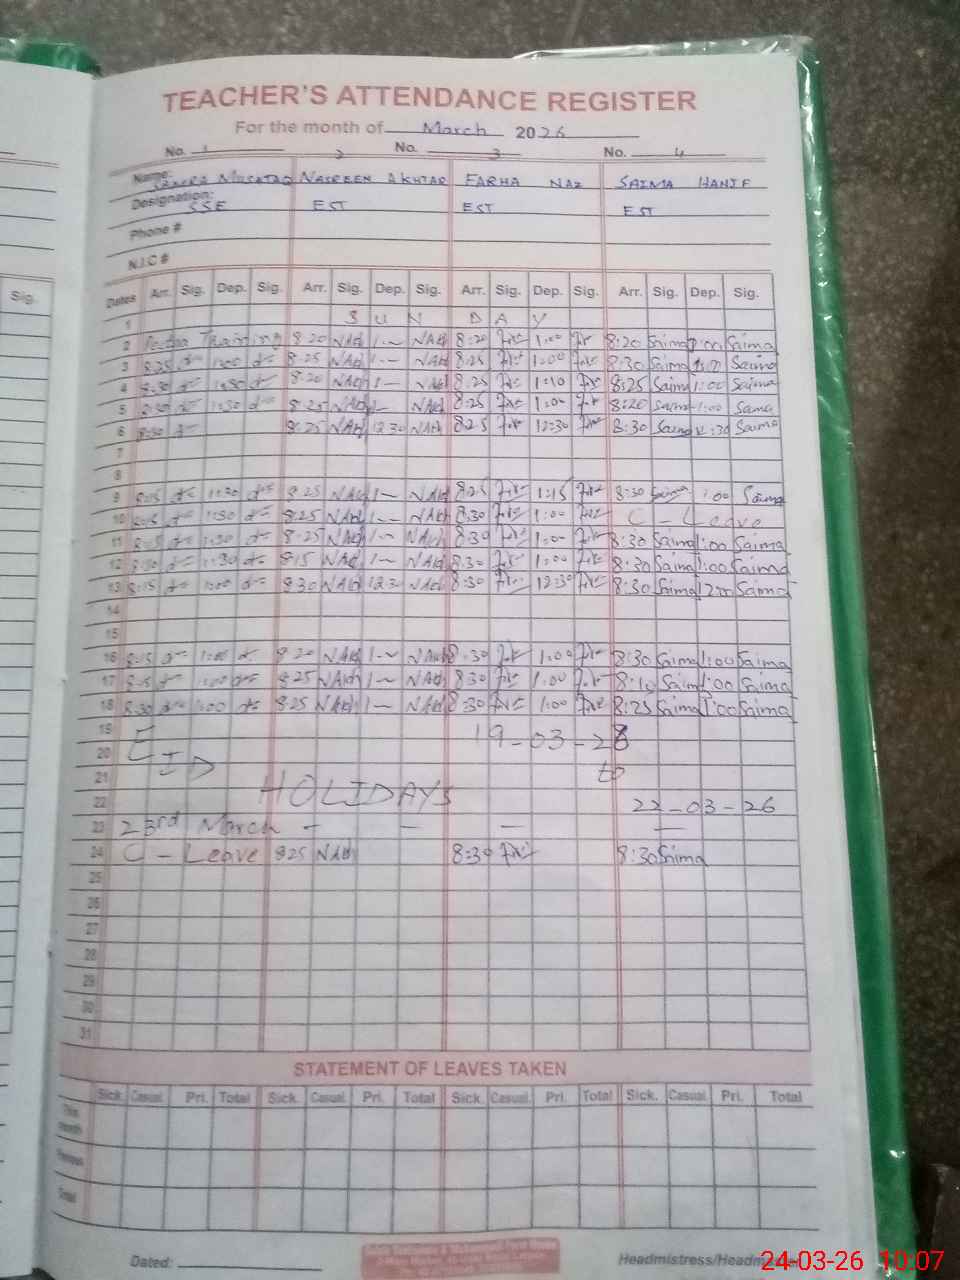 TEACHER'S ATTENDANCE REGISTER
For the month of March 2026
No. 1 2 No. 3 No. 4
Name: MUSHTAQ NASREEN AKHTAR FARHA NAZ SAIMA HANIF
Designation: SSE EST EST EST
Phone #
N.I.C #
Sig. Dates Arr. Sig. Dep. Sig. Arr. Sig. Dep. Sig. Arr. Sig. Dep. Sig. Arr. Sig. Dep. Sig.
1 S U N D A Y
2 Training 8.20 NAkh 1-- NAkh 8:20 1:00 8:20 Saima 1:00 Saima
3 8.25 1:00 8.25 NAkh 1-- NAkh 8:25 1:00 8:30 Saima 1:00 Saima
4 8:30 1:30 8.20 NAkh 1-- NAkh 8:25 1:10 8:25 Saima 1:00 Saima
5 8:30 1:30 8.25 NAkh 1-- NAkh 8:25 1:00 8:20 Saima 1:00 Saima
6 8:30 8.25 NAkh 12.30 NAkh 8:25 12:30 8:30 Saima 12:30 Saima
7
8
9 8:15 1:30 8.25 NAkh 1-- NAkh 8:25 1:15 8:30 Saima 1:00 Saima
10 8:15 1:30 8.25 NAkh 1-- NAkh 8:30 1:00 C - Leave
11 8:15 1:30 8.25 NAkh 1-- NAkh 8:30 1:00 8:30 Saima 1:00 Saima
12 8:30 1:30 8.15 NAkh 1-- NAkh 8:30 1:00 8:30 Saima 1:00 Saima
13 8:15 8.30 NAkh 12.30 NAkh 8:30 12:30 8:30 Saima 12:00 Saima
14
15
16 8:15 1:00 8.20 NAkh 1-- NAkh 8:30 1:00 8:30 Saima 1:00 Saima
17 8:15 1:00 8.25 NAkh 1-- NAkh 8:30 1:00 8:10 Saima 1:00 Saima
18 8:30 1:00 8.25 NAkh 1-- NAkh 8:30 1:00 8:25 Saima 1:00 Saima
19 EID 19-03-26
20
21 to
22 HOLIDAYS 22-03-26
23 23rd March - - - -
24 C - Leave 8.25 NAkh 8:30 8:30 Saima
25
26
27
28
29
30
31
STATEMENT OF LEAVES TAKEN
Sick. Casual. Pri. Total Sick. Casual. Pri. Total Sick. Casual. Pri. Total Sick. Casual. Pri. Total
This Month
Previous
Total
Dated: Headmistress/Headmaster
24-03-26 10:07